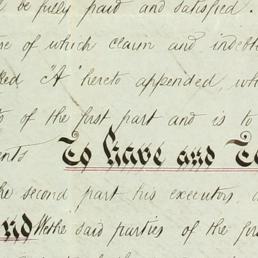 be fully paid and satisfied.
of which claim and indebt
"A" hereto appended, wh
of the first part and is to
ents To have and To
he second part his executors
nd We the said parties of the fir